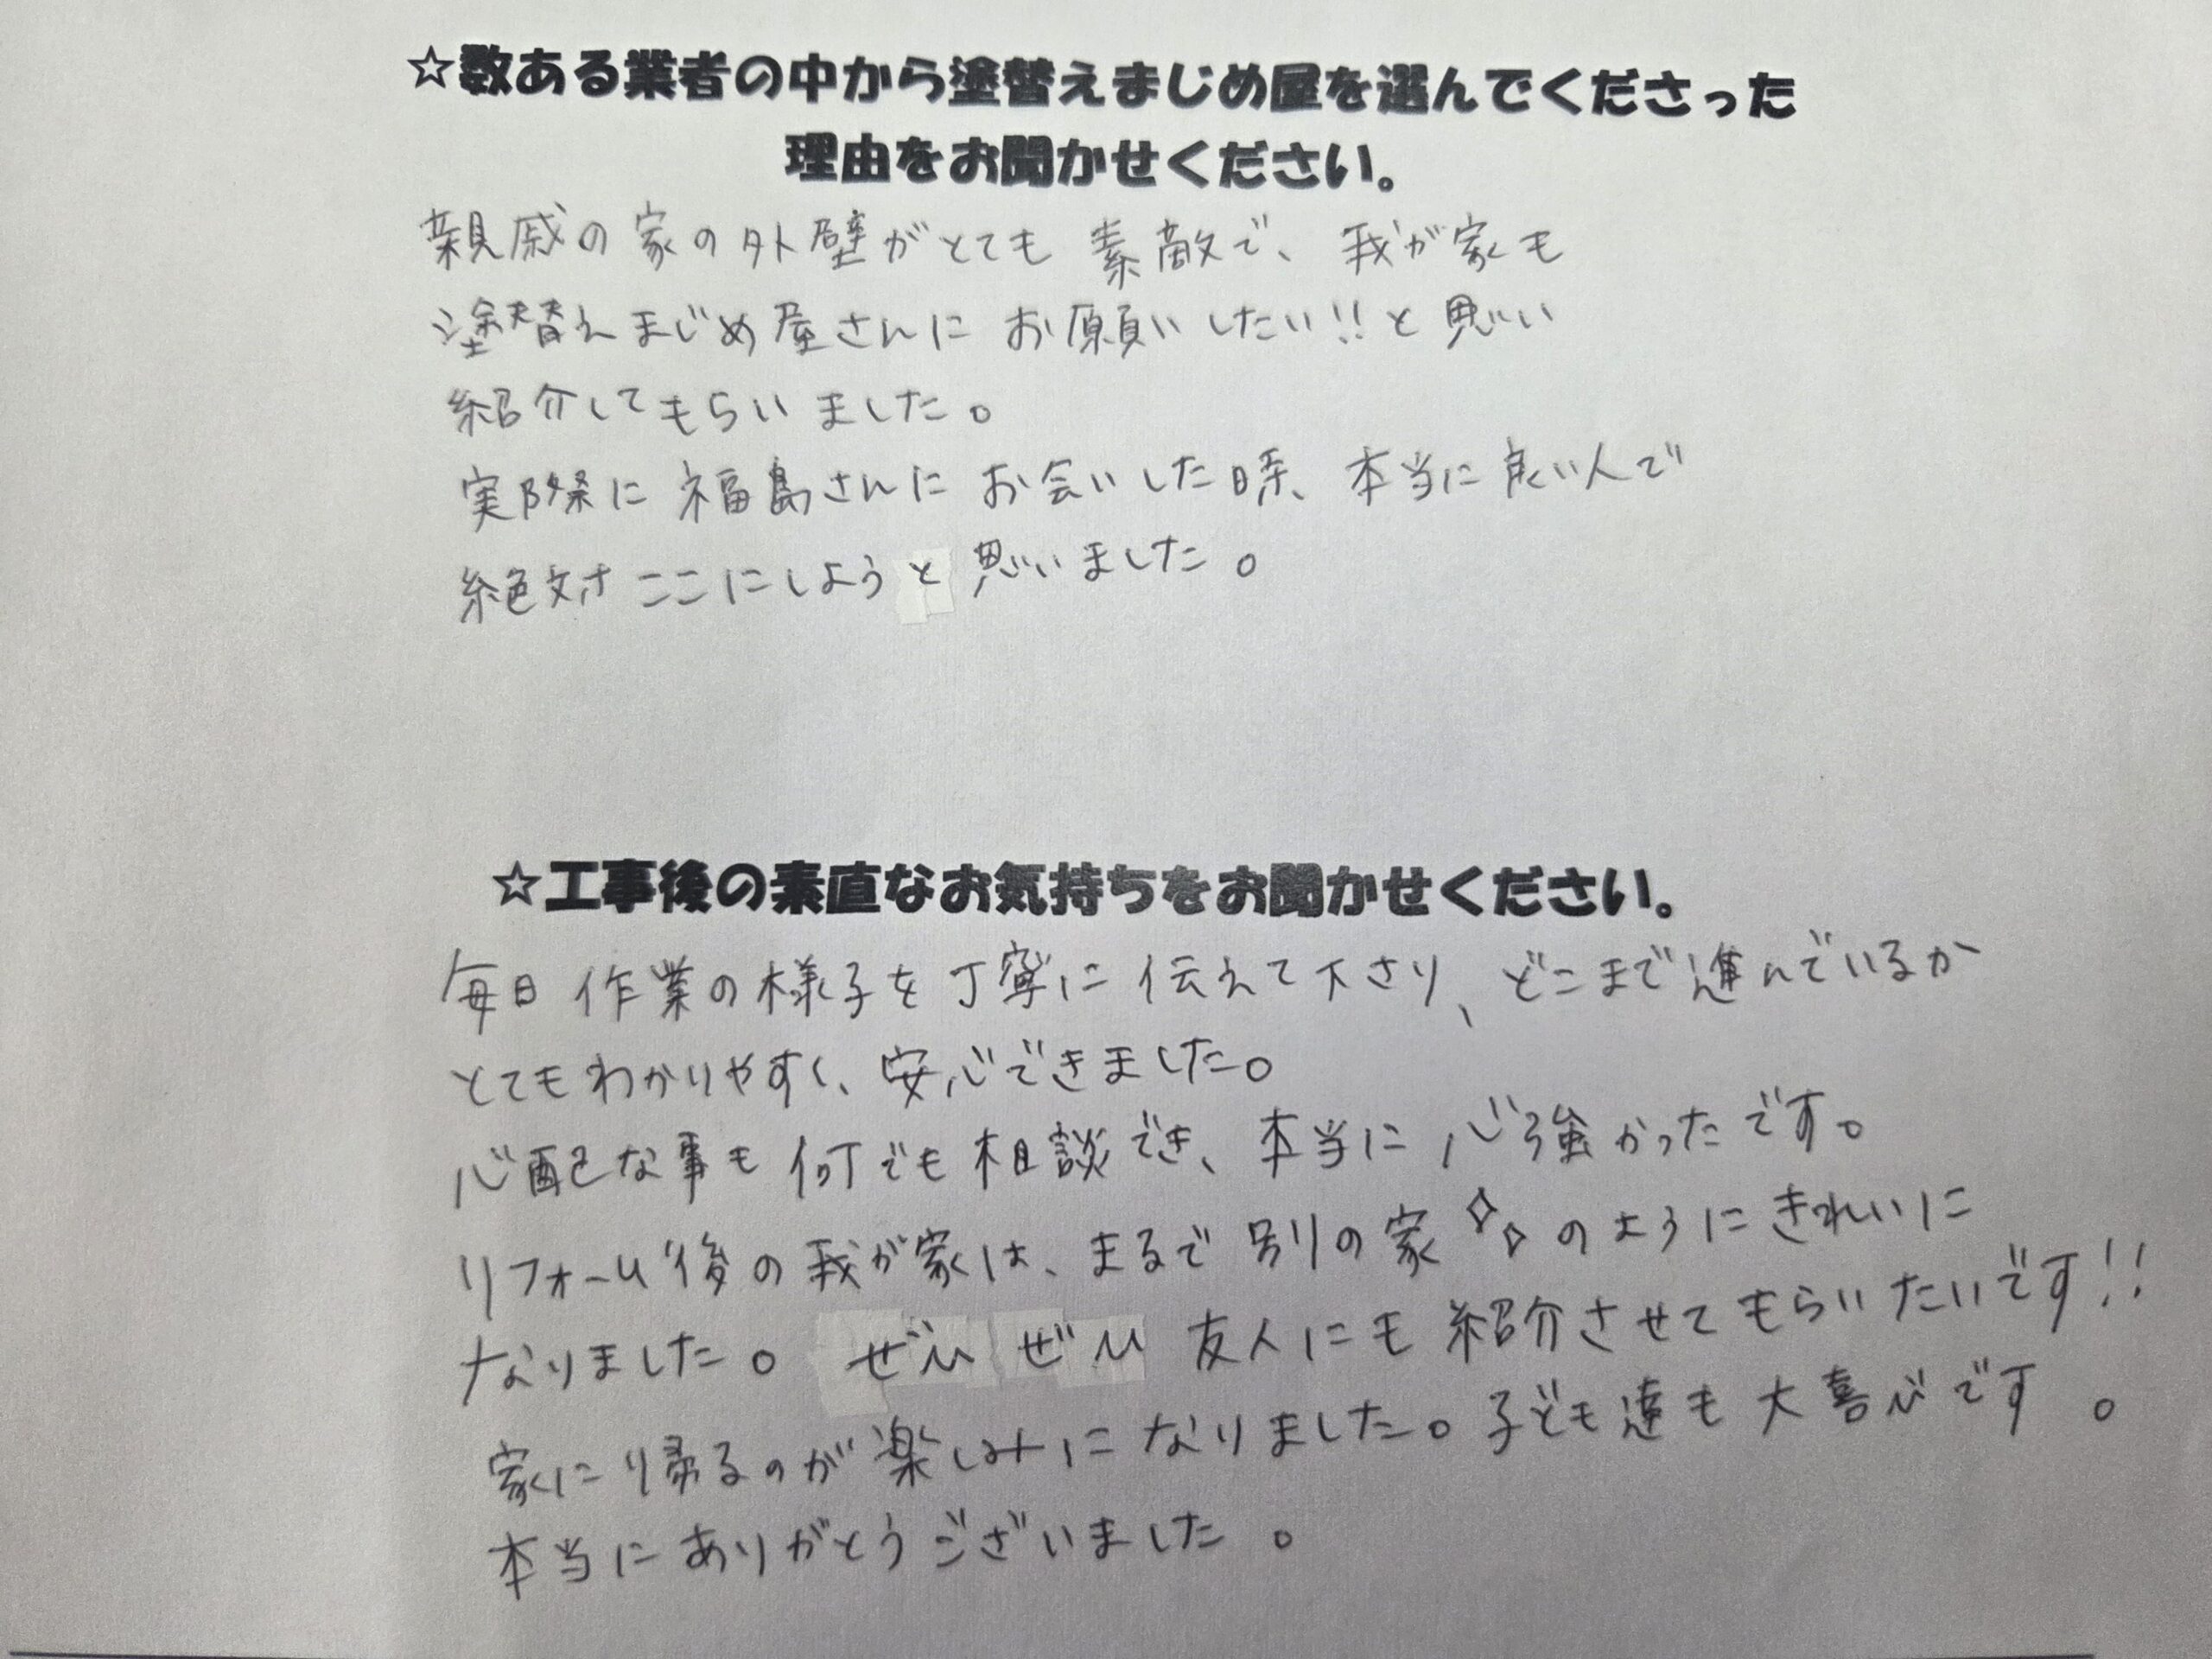 ☆数ある業者の中から塗替えまじめ屋を選んでくださった
理由をお聞かせください。
親戚の家の外壁がとても素敵で、我が家も
塗替えまじめ屋さんにお願いしたい!!と思い
紹介してもらいました。
実際に福島さんにお会いした時、本当に良い人で
絶対ここにしようと思いました。
☆工事後の素直なお気持ちをお聞かせください。
毎日作業の様子を丁寧に伝えて下さり、どこまで進んでいるか
とてもわかりやすく、安心できました。
心配な事も何でも相談でき、本当に心強かったです。
リフォーム後の我が家は、まるで別の家のようにきれいに
なりました。ぜひぜひ友人にも紹介させてもらいたいです!!
家に帰るのが楽しみになりました。子ども達も大喜びです。
本当にありがとうございました。